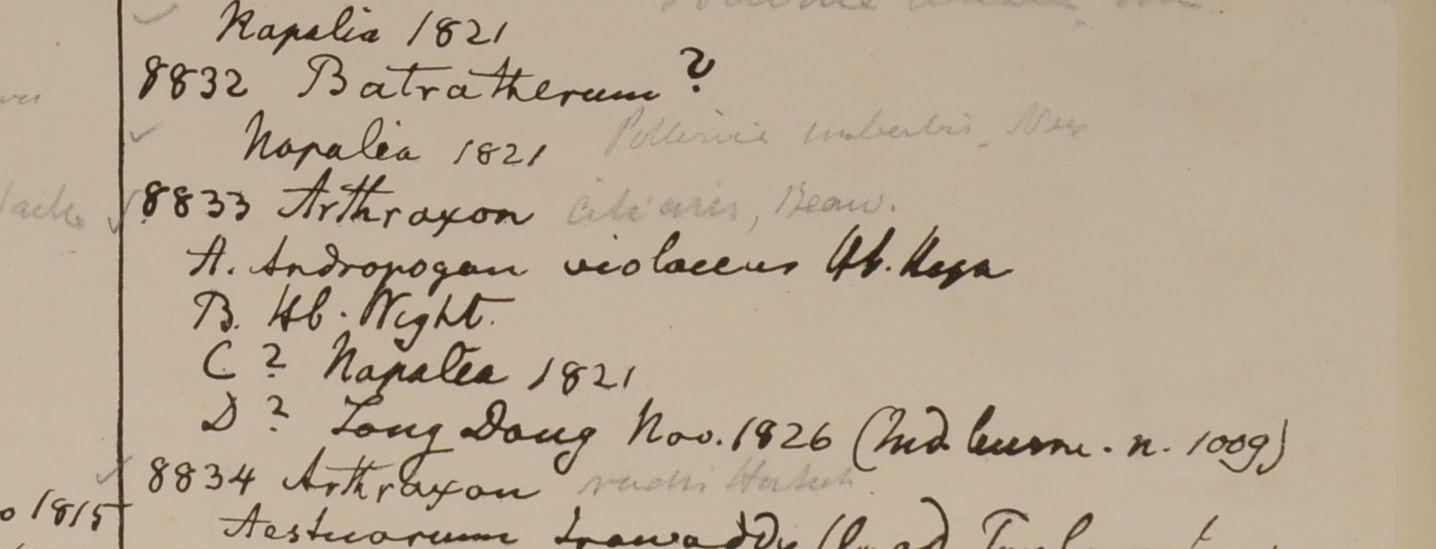 Napalia 1821
8832 Batratherum ?
Napalia 1821 Pollinia imberbis, Nees
8833 Arthraxon ciliaris, Beauv.
A. Andropogon violaceus Hb. Heyn
B. Hb. Wight.
C ? Napalia 1821
D ? Tong Dong Nov. 1826 (Ind. burm. n. 1009)
8834 Arthraxon
o 1815
Aestuarium Irawaddy